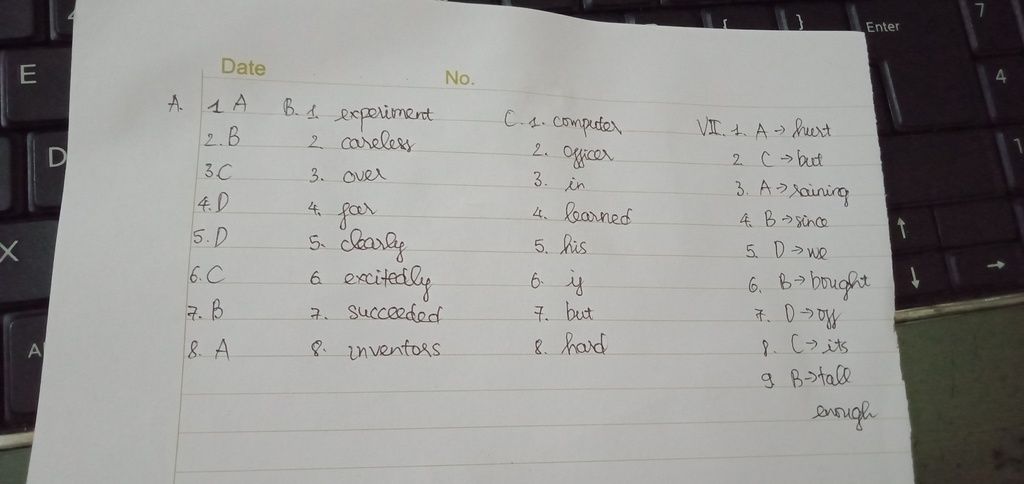 Date
No.
A. 1 A
2. B
3 C
4. D
5. D
6. C
7. B
8. A
B. 1. experiment
2 careless
3. over
4. far
5. clearly
6 excitedly
7. succeeded
8. inventors
C. 1. computer
2. officer
3. in
4. learned
5. his
6. if
7. but
8. hard
VII. 1. A → hurt
2 C → but
3. A → raining
4. B → since
5. D → we
6. B → bought
7. D → off
8. C → its
9 B → tall
enough
E
D
X
A
{
}
Enter
7
4
1
↑
↓
→